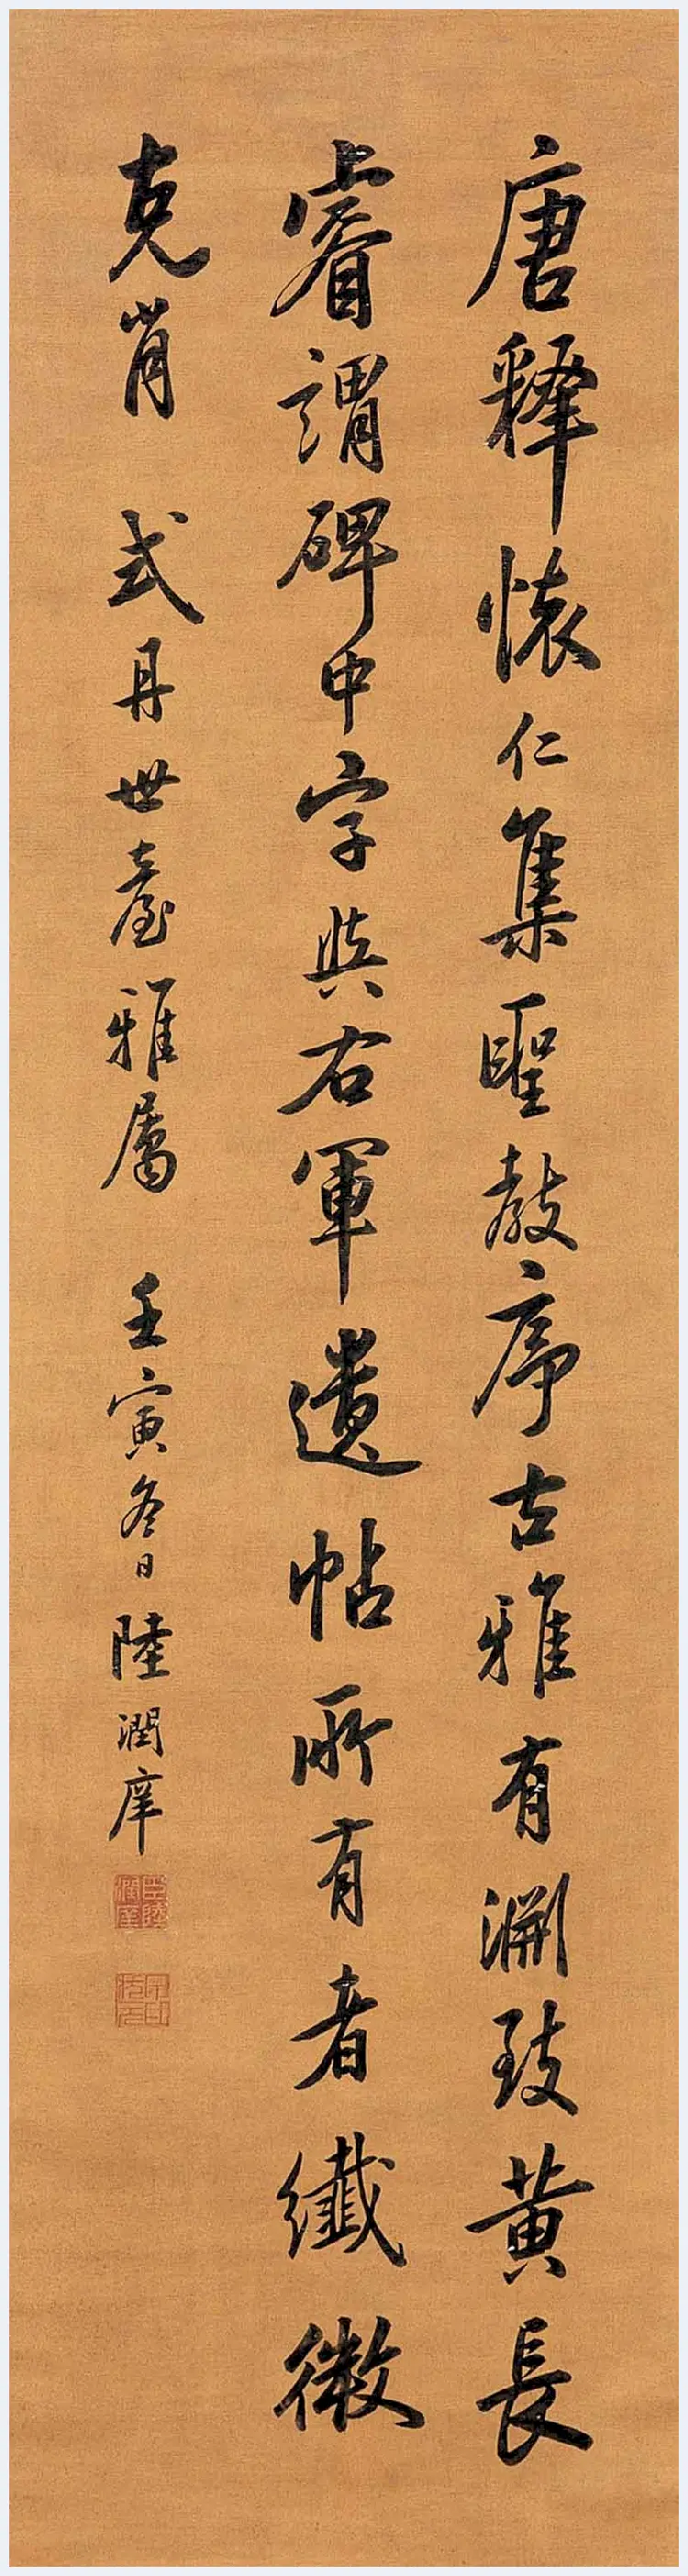 唐釋懷仁集聖教序古雅有淵致黃長
睿謂碑中字與右軍遺帖所有者纖微
克肖 式丹世臺雅屬 壬寅冬日 陸潤庠
臣陸潤庠